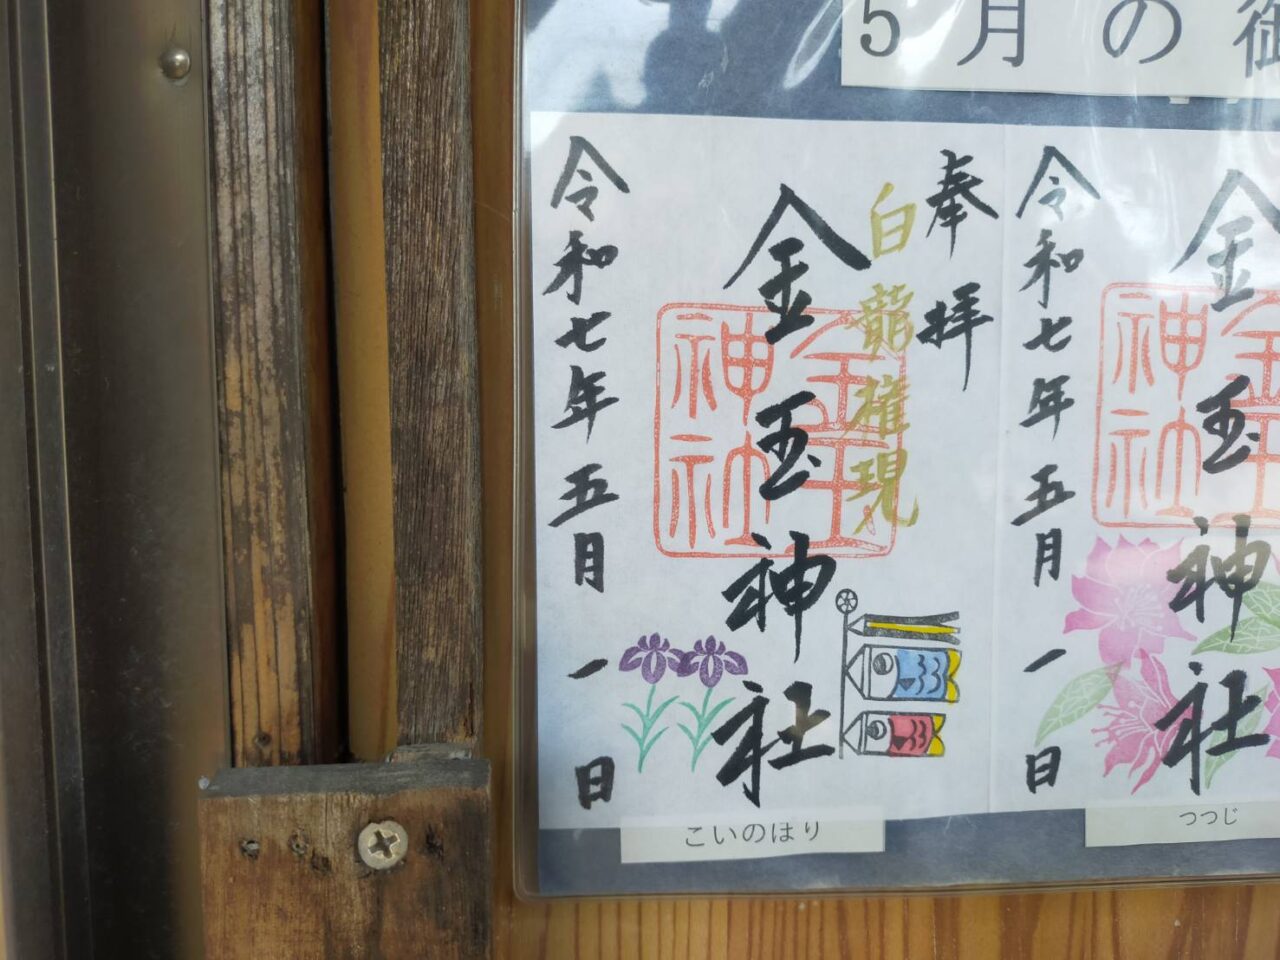 5月の御
奉拝
白龍権現
金玉神社
金玉神社
令和七年五月一日
こいのぼり
金玉神社
令和七年五月一日
つつじ